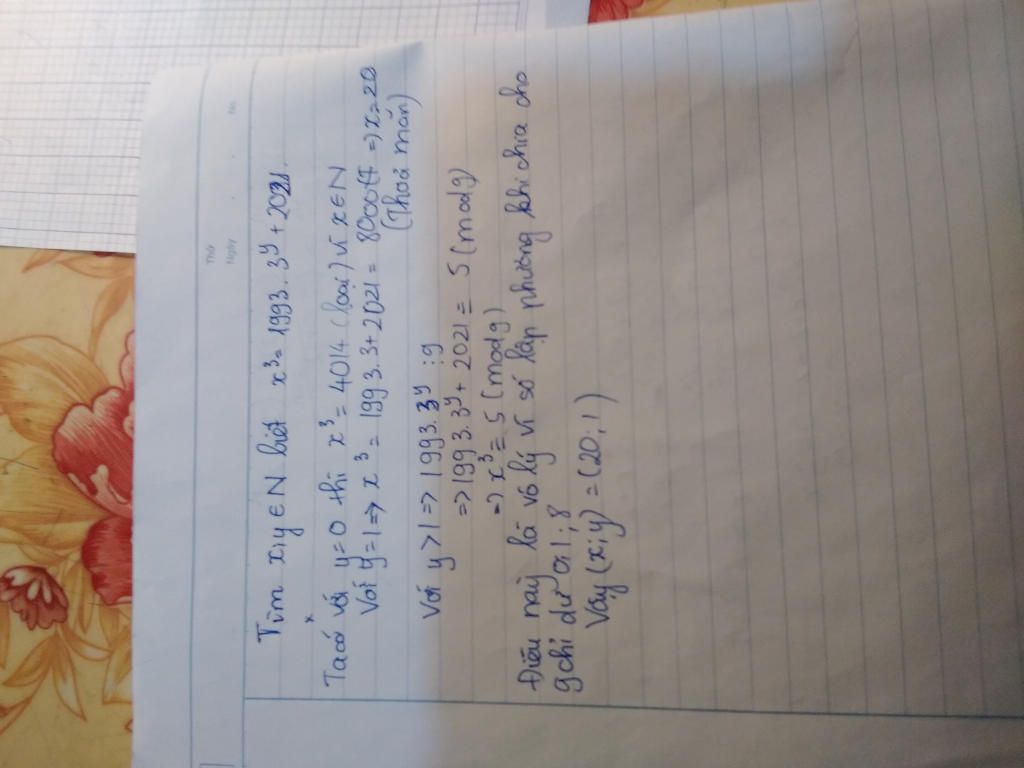 Thứ
Ngày . . No.
Tìm x,y ∈ N biết x³ = 1993. 3^y + 2021.
Ta có với y=0 thì x³ = 4014 (loại) vì x ∈ N
Với y=1 => x³ = 1993.3+2021 = 8000 => x=20
(Thoả mãn)
Với y>1 => 1993.3^y ⋮ 9
=> 1993.3^y + 2021 ≡ 5 (mod 9)
=> x³ ≡ 5 (mod 9)
Điều này là vô lý vì số lập phương khi chia cho
9 chỉ dư 0; 1; 8
Vậy (x;y) = (20; 1)